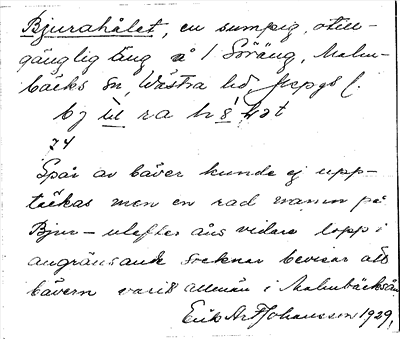 Bjurahålet, en sumpig, otill-
gänglig äng å 1 Söräng, Malm-
bäcks sn, Västra hd, Jkpgs l.
bj ra h
74
Spår av bäver kunde ej upp-
täckas men en rad namn på
Bjur- utefter åns vidare lopp i
angränsande socknar bevisar att
bävern varit allmän i Malmbäcksån
Erik Johansson 1929.